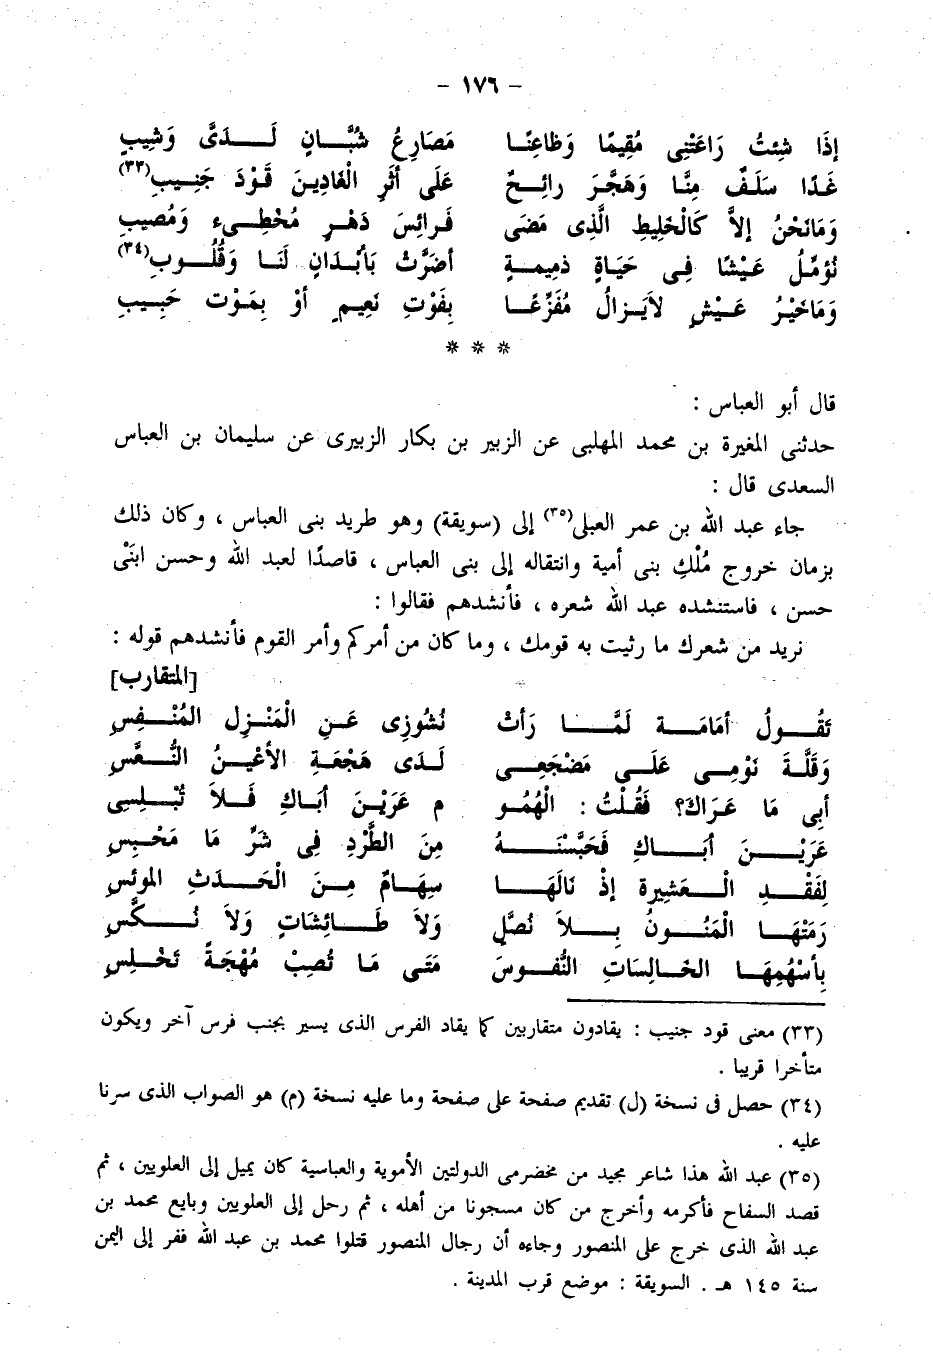 - ١٧٦ -
إذَا شِئتُ رَاعَتْنِى مُقِيمًا وَظاعِنًا مَصَارِعُ شُبَّانٍ لَدَىَّ وَشِيبِ
غَدًا سَلَفٌ مِنَّا وَهَجَّرَ رائِحٌ عَلَى أثَرِ الْغَادِينَ قَوْدَ جَنِيبِ(٣٣)
وَمَانَحْنُ إلاَّ كَالْخَلِيطِ الَّذِى مَضَى فَرائِسَ دَهْرٍ مُخْطِىءٍ وَمُصيبِ
نُؤمِّلُ عَيْشًا فِى حَيَاةٍ ذمِيمةٍ أضرَّتْ بَأبْدَانٍ لَنَا وَقُلُوبِ(٣٤)
وَمَاخَيْرُ عَيْشٍ لاَيَزالُ مُفَزِّعًا بِفَوْتِ نَعِيمٍ أوْ بِمَوْت حَبِيبِ
* * *
قال أبو العباس :
حدثنى المغيرة بن محمد المهلبى عن الزبير بن بكار الزبيرى عن سليمان بن العباس
السعدى قال :
جاء عبد الله بن عمر العبلى(٣٥) إلى (سويقة) وهو طريد بنى العباس ، وكان ذلك
بزمان خروج مُلْكِ بنى أمية وانتقاله إلى بنى العباس ، قاصدًا لعبد الله وحسن ابنَىْ
حسن ، فاستنشده عبد الله شعره ، فأنشدهم فقالوا :
نريد من شعرك ما رثيت به قومك ، وما كان من أمركم وأمر القوم فأنشدهم قوله :
[المتقارب]
تَقُولُ أمَامَة لَمَّا رَأتْ نُشُوزِى عَنِ الْمَنْزِل المُنْفِسِ
وَقَلَّةَ نَوْمِى عَلَى مَضْجَعِى لَدَى هَجْعَةِ الأعْيُنُ النُّعَّسِ
أبِى مَا عَرَاكَ؟ فَقُلْتُ : الْهُمُو م عَرَيْنَ أبَاكِ فَلاَ تُبْلِسِى
عَرَيْنَ أبَاكِ فَحَبَّسْنَهُ مِنَ الطَّرْدِ فِى شَرِّ مَا مَحْبِسِ
لِفَقْدِ الْعَشِيرة إذْ نَالَهَا سِهَامٌ مِنَ الْحَدَثِ الموئسِ
رَمَتْهَا الْمَنُونُ بِلاَ نُصَّلٍ وَلاَ طَائِشَاتٍ وَلاَ نُكَّسِ
بِأسْهُمِهَا الخَالِسَاتِ النُّفُوسَ مَتَى مَا تُصِبْ مُهْجَةً تَخْلِسِ
(٣٣) معنى قود جنيب : يقادون متقاربين كما يقاد الفرس الذى يسير بجنب فرس آخر ويكون
متأخرا قريبا .
(٣٤) حصل فى نسخة (ل) تقديم صفحة على صفحة وما عليه نسخة (م) هو الصواب الذى سرنا
عليه .
(٣٥) عبد الله هذا شاعر مجيد من مخضرمى الدولتين الأموية والعباسية كان يميل إلى العلويين ، ثم
قصد السفاح فأكرمه وأخرج من كان مسجونا من أهله ، ثم رحل إلى العلويين وبايع محمد بن
عبد الله الذى خرج على المنصور وجاءه أن رجال المنصور قتلوا محمد بن عبد الله ففر إلى اليمن
سنة ١٤٥ هـ . السويقة : موضع قرب المدينة .